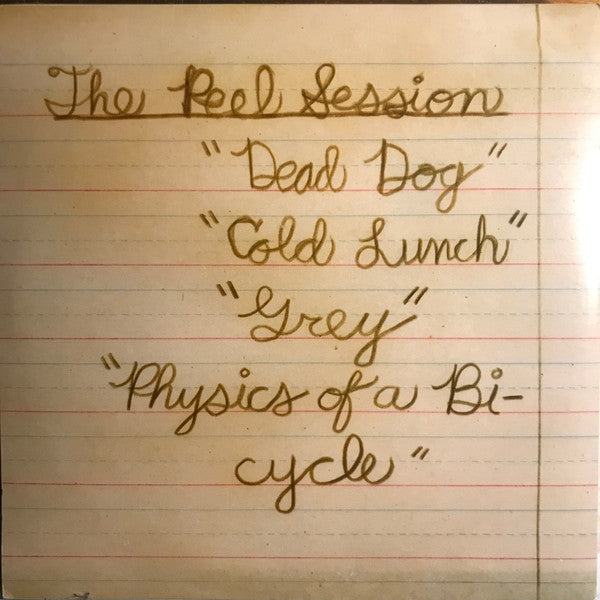 The Peel Session
"Dead Dog"
"Cold Lunch"
"Grey"
"Physics of a Bi-
cycle"